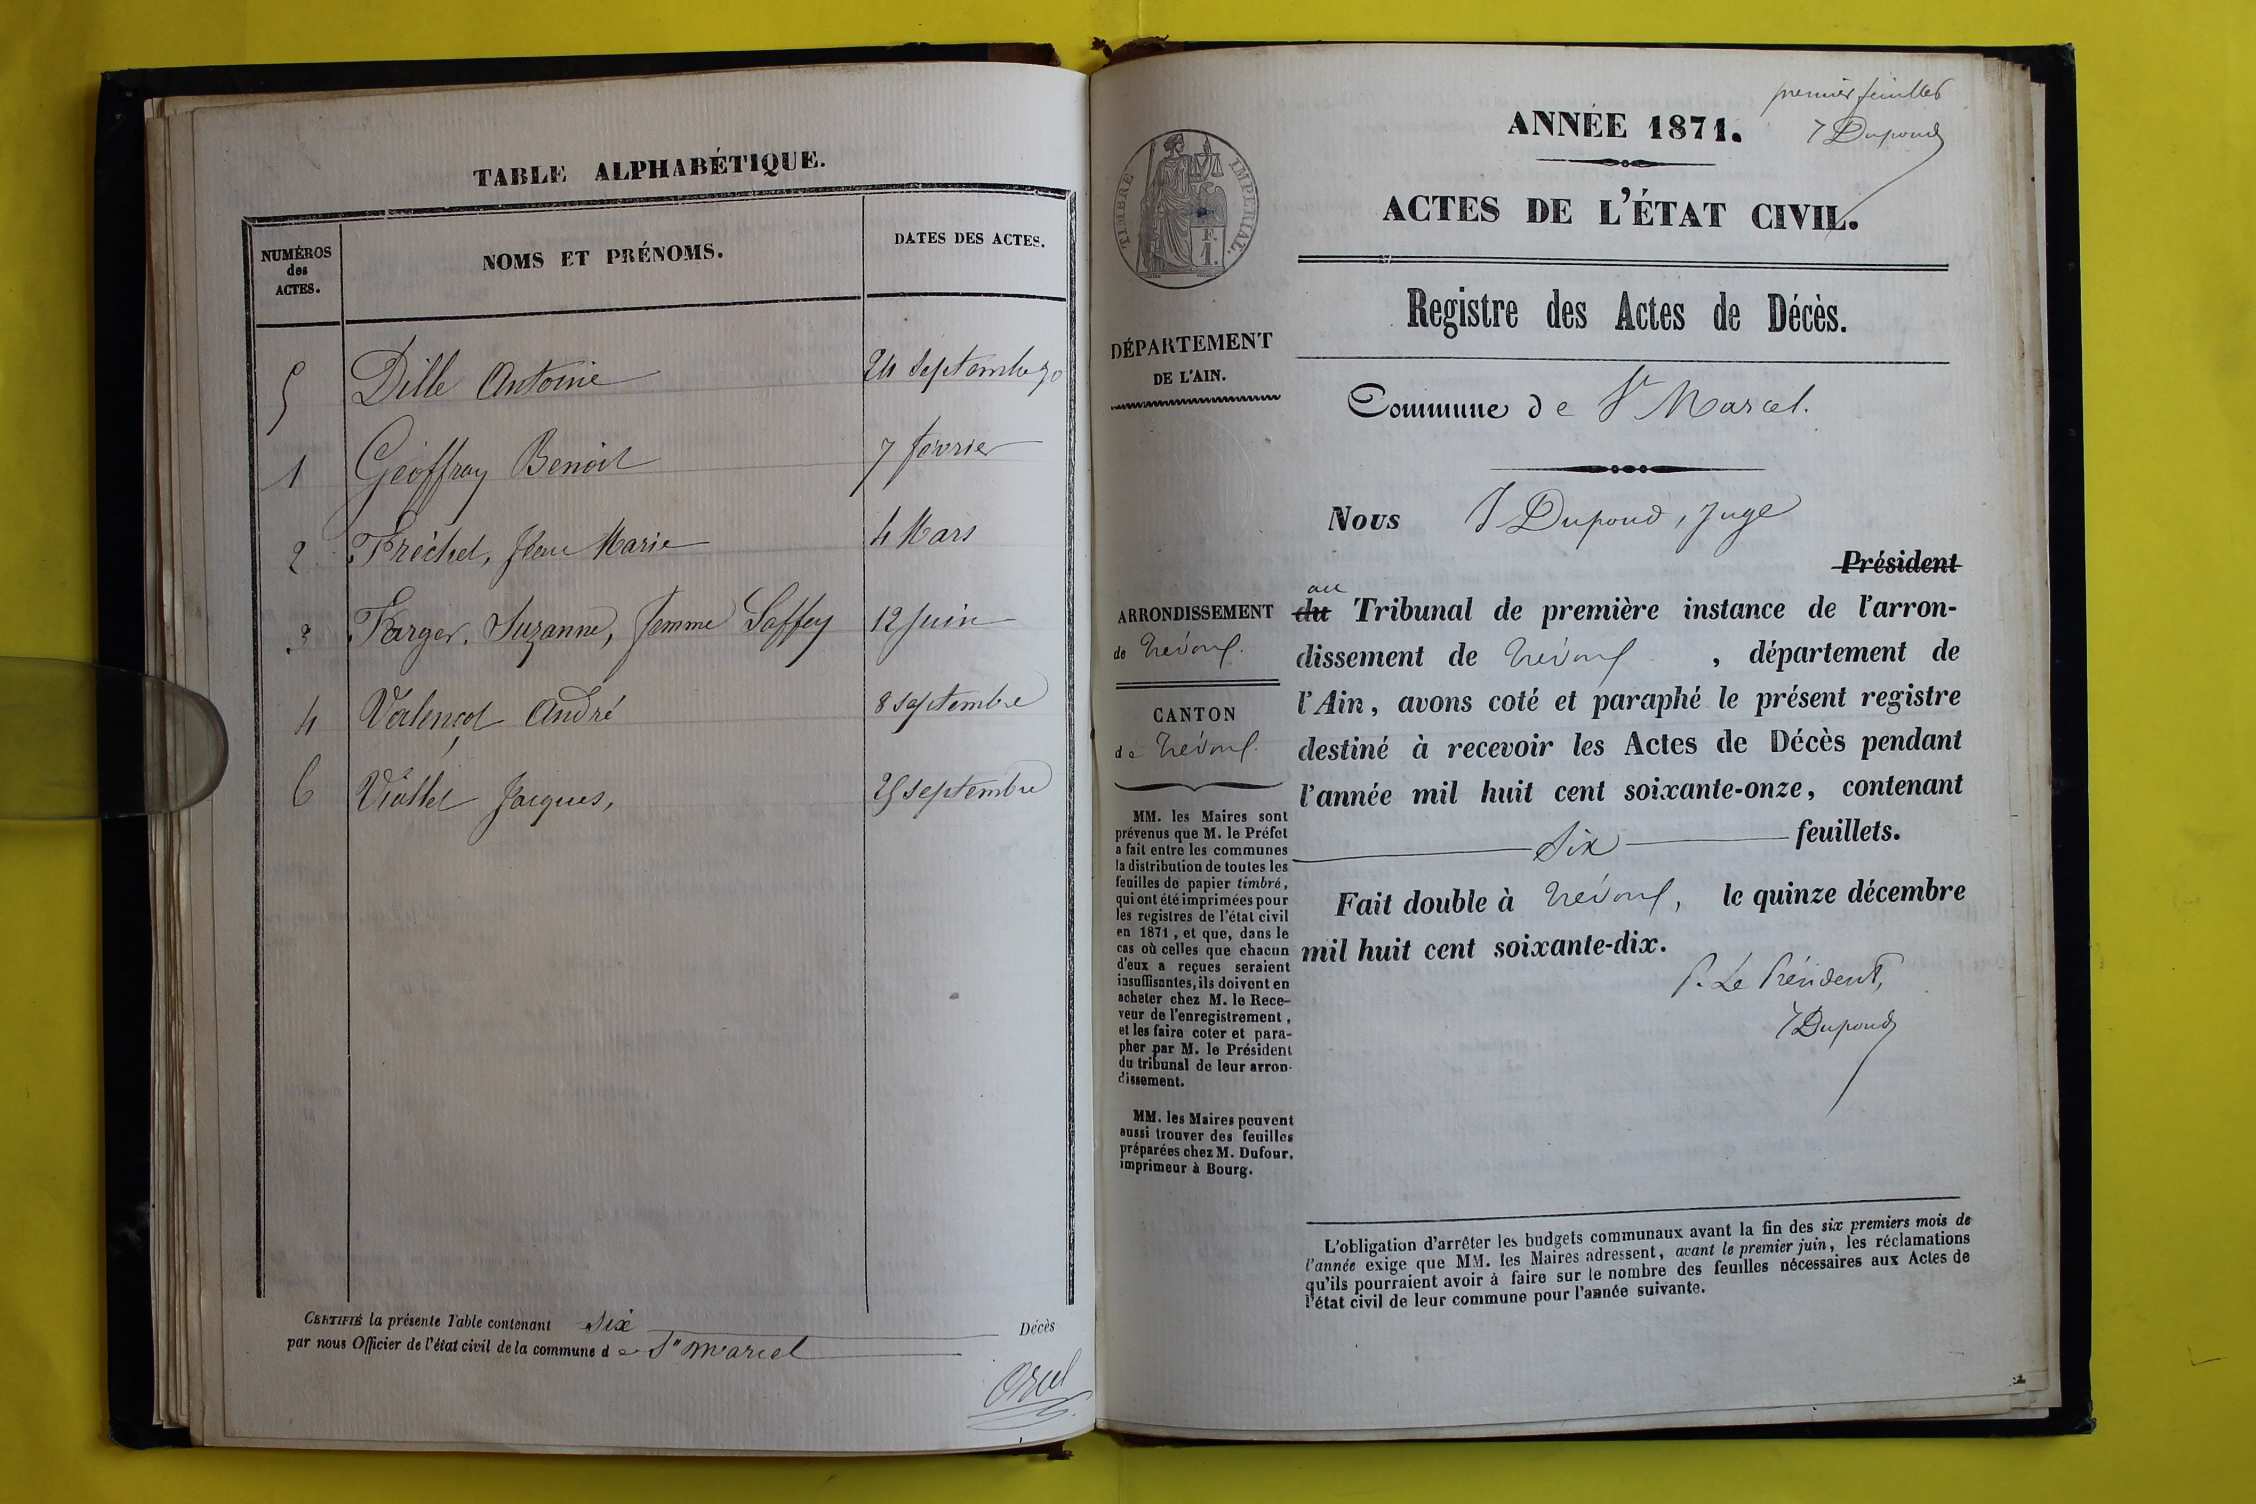 TABLE ALPHABÉTIQUE.
NUMÉROS
des
ACTES.
NOMS ET PRÉNOMS.
DATES DES ACTES.
5 Dille Antoine 24 septembre 70
1 Géoffray Benoit 7 fevrier
2 Fréchet, Jean Marie 4 Mars
3 Farger, Suzanne, femme Saffey 12 Juin
4 Valençot André 8 septembre
6 Viallet Jacques, 25 septembre
CERTIFIÉ la présente Table contenant six Décès
par nous Officier de l'état civil de la commune de St marcel
Orcel
premier feuillet
J Dupond
ANNÉE 1871.
ACTES DE L'ÉTAT CIVIL.
TIMBRE IMPÉRIAL.
F.
1.
Registre des Actes de Décès.
DÉPARTEMENT
DE L'AIN.
Commune de St Marcel.
Nous J Dupond, Juge
Président
au
du Tribunal de première instance de l'arron-
dissement de Trévoux, département de
l'Ain, avons coté et paraphé le présent registre
destiné à recevoir les Actes de Décès pendant
l'année mil huit cent soixante-onze, contenant
Six feuillets.
Fait double à Trévoux, le quinze décembre
mil huit cent soixante-dix.
P. Le Président,
J Dupond
ARRONDISSEMENT
de Trévoux.
CANTON
de Trévoux.
MM. les Maires sont
prévenus que M. le Préfet
a fait entre les communes
la distribution de toutes les
feuilles de papier timbré,
qui ont été imprimées pour
les registres de l'état civil
en 1871, et que, dans le
cas où celles que chacun
d'eux a reçues seraient
insuffisantes, ils doivent en
acheter chez M. le Rece-
veur de l'enregistrement,
et les faire coter et para-
pher par M. le Président
du tribunal de leur arron-
dissement.
MM. les Maires peuvent
aussi trouver des feuilles
préparées chez M. Dufour,
imprimeur à Bourg.
L'obligation d'arrêter les budgets communaux avant la fin des six premiers mois de
l'année exige que MM. les Maires adressent, avant le premier juin, les réclamations
qu'ils pourraient avoir à faire sur le nombre des feuilles nécessaires aux Actes de
l'état civil de leur commune pour l'année suivante.